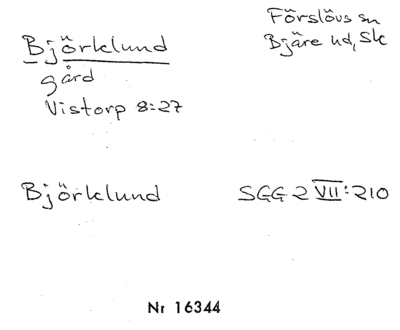 Björklund
Förslövs sn
Bjäre hd, Sk
gård
Vistorp 8:27
Björklund
SGG 2 VII:210
Nr 16344